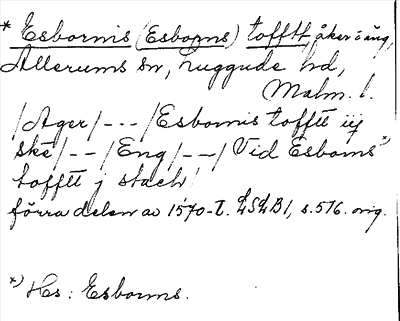 * Esbornis (Esborns) tofftt, åker i äng,
Allerums sn, Luggude hd,
Malm. l.
/Ager/---/Esbornis tofftt iij
ske/--/Eng/--/Vid Esborns*)
tofftt j stach/
förra delen av 1570-t. LSLB1, s. 576. orig.
*) Hs: Esborms.